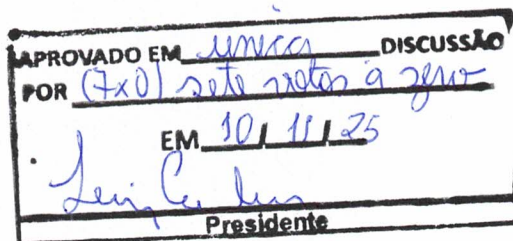 APROVADO EM única DISCUSSÃO
POR (7x0) sete votos a zero
EM 10/11/25
Presidente